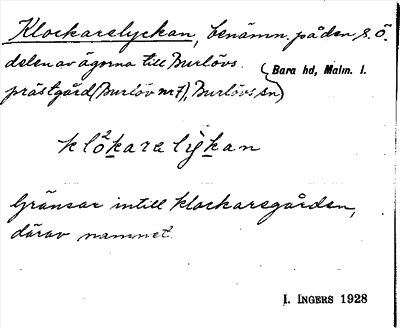 Klockarelyckan, benämn. på den s. ö.
delen av ägorna till Burlövs
prästgård (Burlöv nr 7), Burlövs sn
(Bara hd, Malm. l.)
klòkaralỳkan
Gränsar intill klockaregården,
därav namnet.
I. INGERS 1928